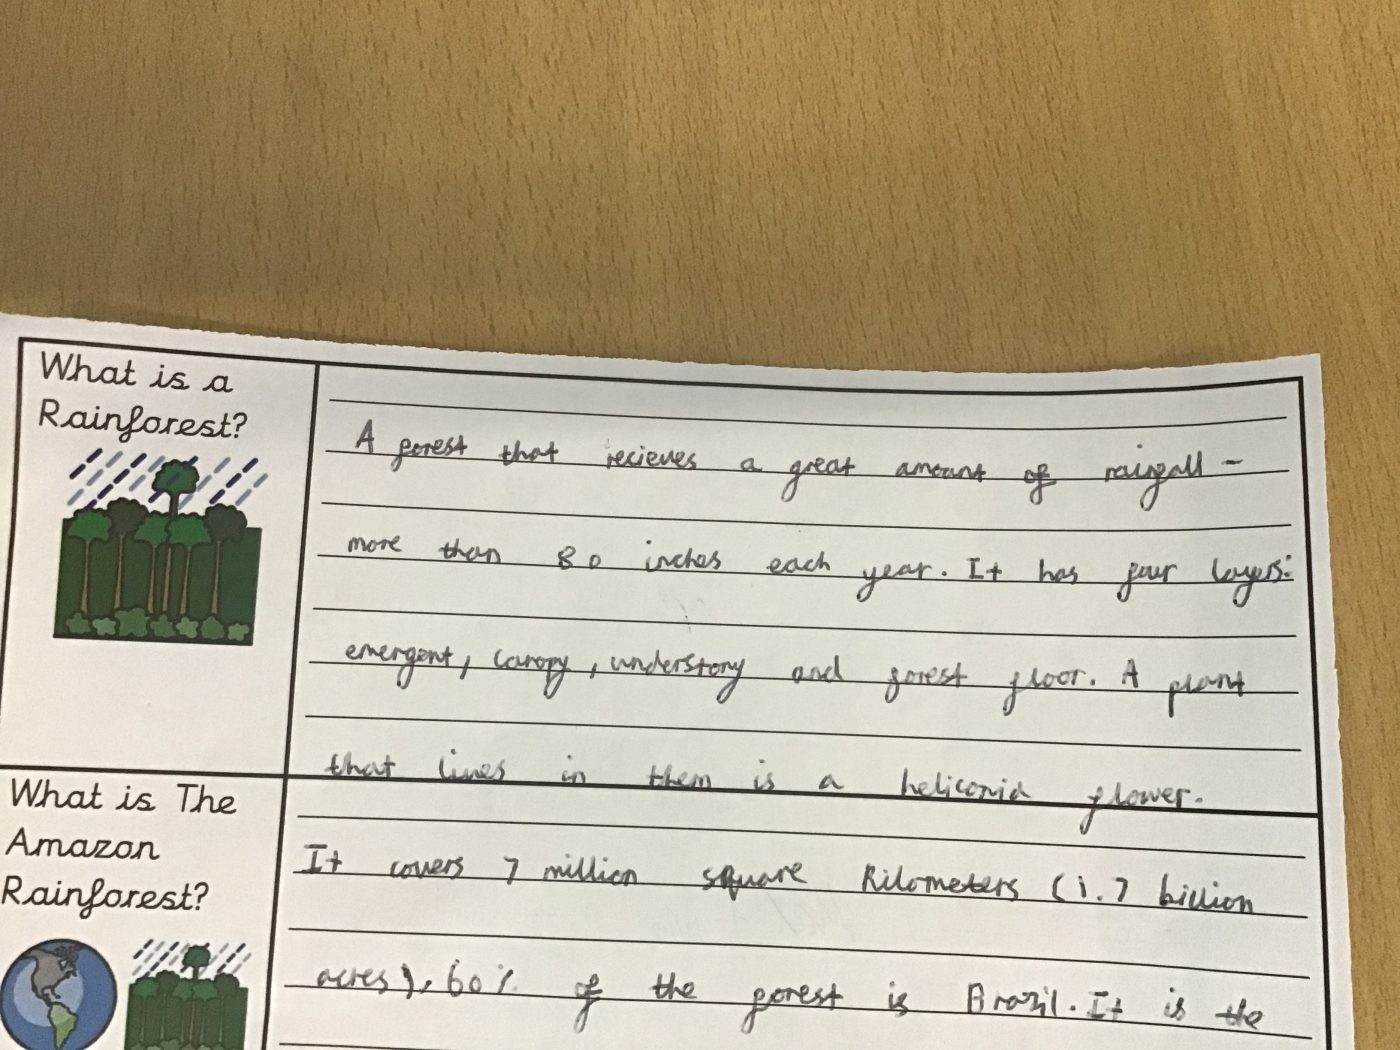 What is a
Rainforest?
A forest that recieves a great amount of rainfall -
more than 80 inches each year. It has four layers:
emergent, canopy, understory and forest floor. A plant
that lives in them is a heliconia flower.
What is The
Amazon
Rainforest?
It covers 7 million square kilometers (1.7 billion
acres), 60% of the forest is Brazil. It is the